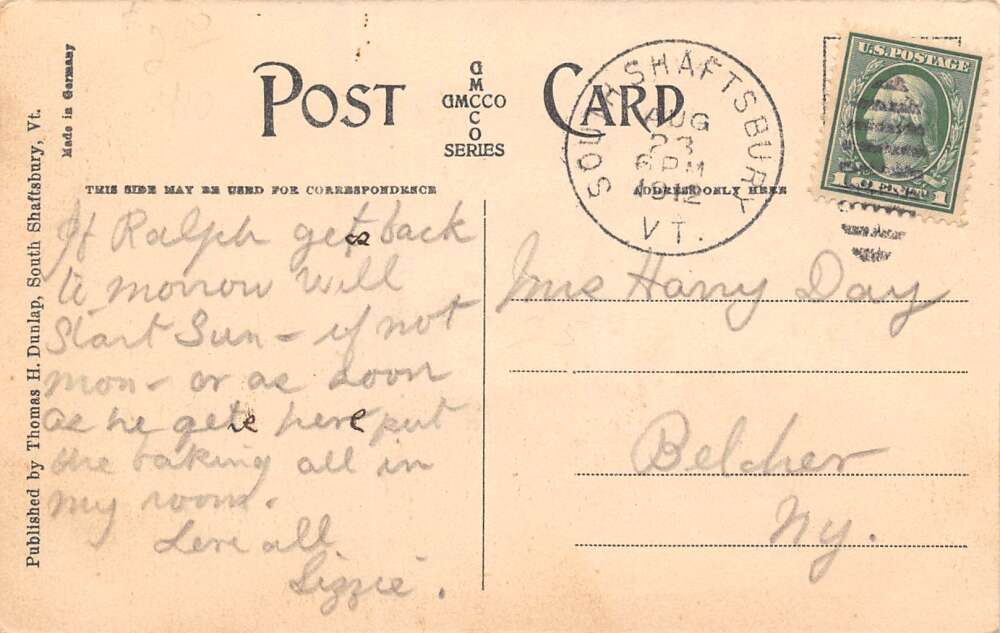 Made in Germany
Published by Thomas H. Dunlap, South Shaftsbury, Vt.
POST CARD
GMCCO
GMCCO
SERIES
THIS SIDE MAY BE USED FOR CORRESPONDENCE
ADDRESS ONLY HERE
SOUTH SHAFTSBURY
AUG
23
6 PM
1912
VT.
U.S. POSTAGE
1 CENT 1
If Ralph gets back
to morrow will
Start Sun - if not
mon - or as soon
as he gets here put
the baking all in
my room.
Love all
Lizzie.
Mrs Harry Day
Belcher
Ny.